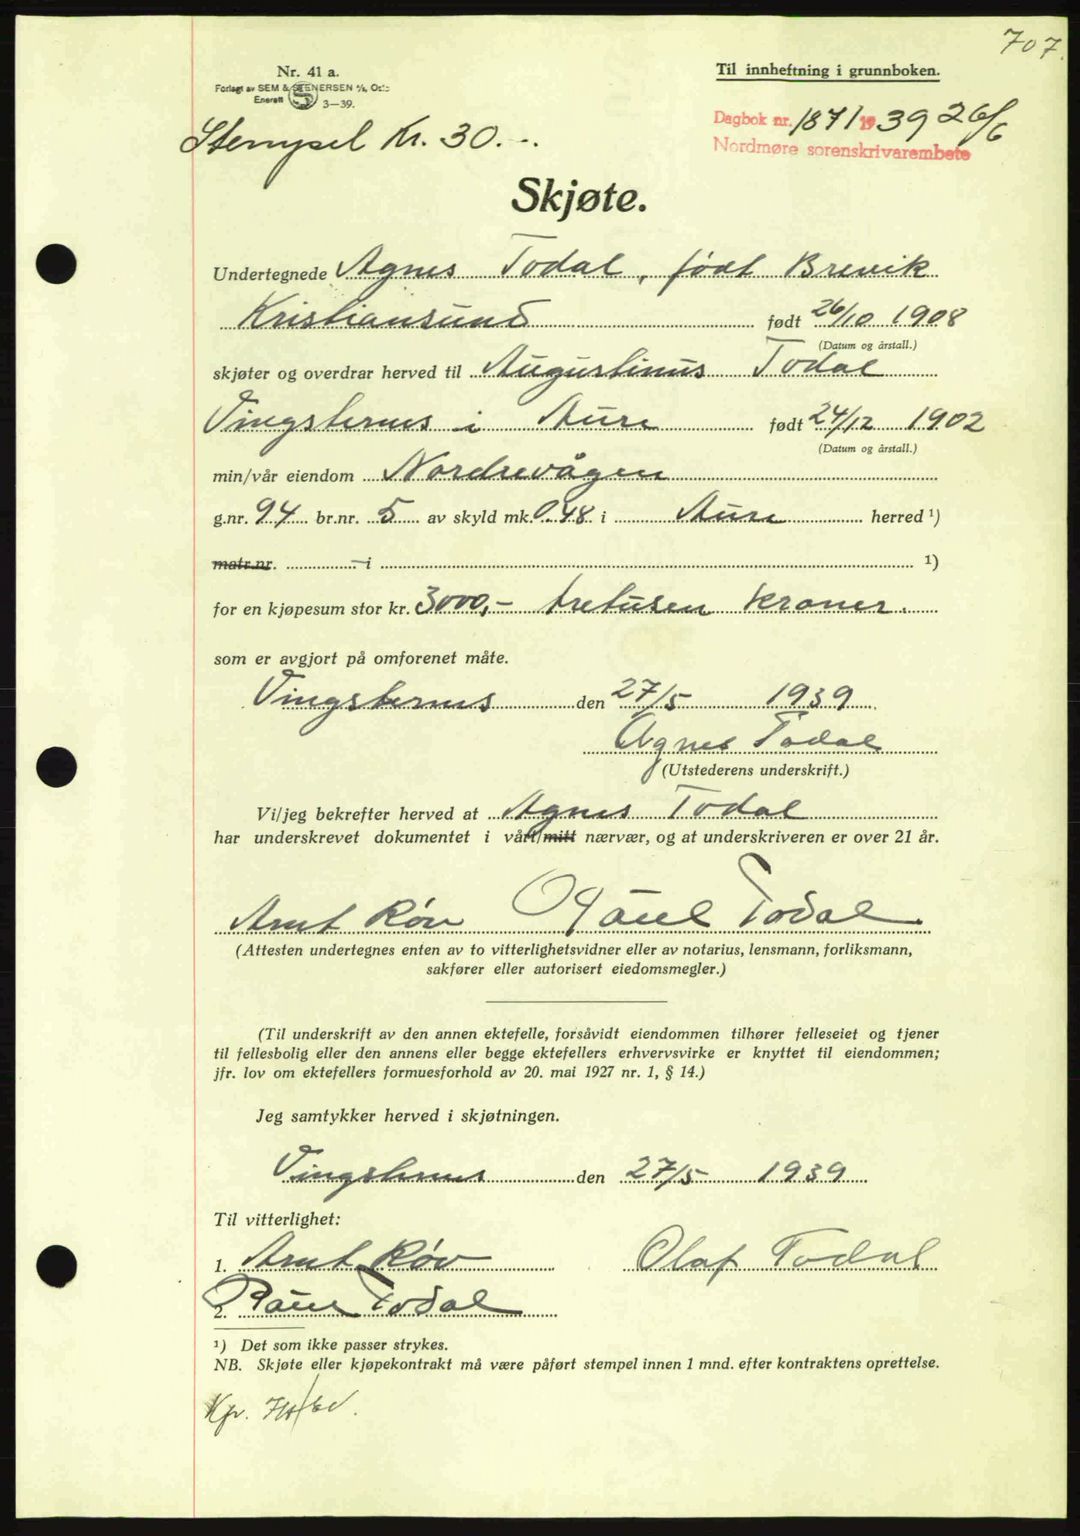 707.
Nr. 41 a.
Til innheftning i grunnboken.
Forlagt av SEM & STENERSEN A/S, Oslo
Enerett 3—39.
Dagbok nr. 1871 1939 26/6
Nordmøre sorenskrivarembete
Stempel Kr. 30.-.
Skjøte.
Undertegnede Agnes Todal, født Brevik
Kristiansund født 26/10 1908
(Datum og årstall.)
skjøter og overdrar herved til Augustinus Todal
Vingsternes i Aure født 24/12 1902
(Datum og årstall.)
min/vår eiendom Nordrevågen
g.nr. 94 br.nr. 5 av skyld mk. 0.48 i Aure herred ¹)
matr.nr. - i ¹)
for en kjøpesum stor kr. 3000,- tretusen kroner.
som er avgjort på omforenet måte.
Vingsternes den 27/5 1939
Agnes Todal
(Utstederens underskrift.)
Vi/jeg bekrefter herved at Agnes Todal
har underskrevet dokumentet i vårt/mitt nærvær, og at underskriveren er over 21 år.
Arnt Røv Paul Todal
(Attesten undertegnes enten av to vitterlighetsvidner eller av notarius, lensmann, forliksmann,
sakfører eller autorisert eiedomsmegler.)
(Til underskrift av den annen ektefelle, forsåvidt eiendommen tilhører felleseiet og tjener
til fellesbolig eller den annens eller begge ektefellers erhvervsvirke er knyttet til eiendommen;
jfr. lov om ektefellers formuesforhold av 20. mai 1927 nr. 1, § 14.)
Jeg samtykker herved i skjøtningen.
Vingsternes den 27/5 1939
Til vitterlighet:
1. Arnt Røv Olaf Todal
2. Paul Todal
¹) Det som ikke passer strykes.
NB. Skjøte eller kjøpekontrakt må være påført stempel innen 1 mnd. efter kontraktens oprettelse.